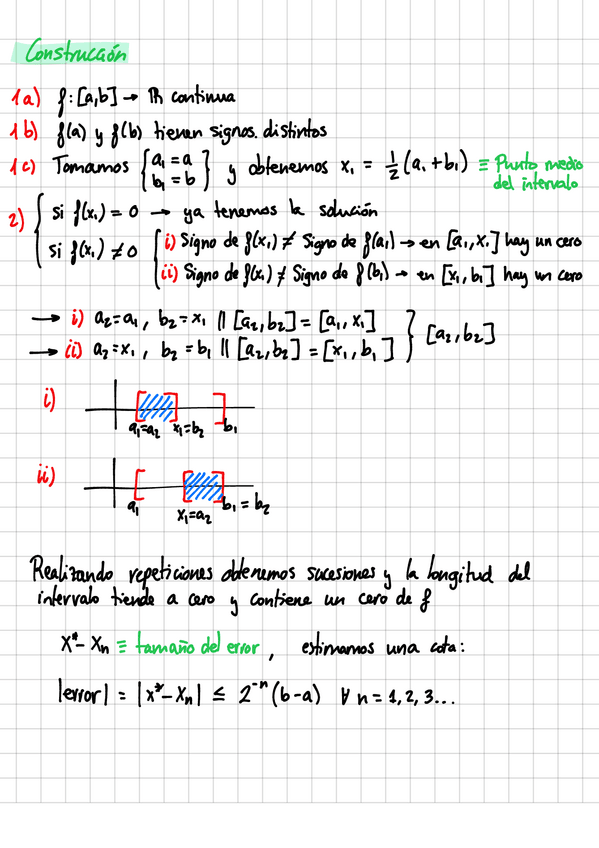 Construcción
1a) f: [a,b] → ℝ continua
1b) f(a) y f(b) tienen signos. distintos
1c) Tomamos { a₁ = a b₁ = b } y obtenemos x₁ = 1/2 (a₁ + b₁) ≡ Punto medio del intervalo
2) { si f(x₁) = 0 → ya tenemos la solución
si f(x₁) ≠ 0 [ i) Signo de f(x₁) ≠ Signo de f(a₁) → en [a₁, x₁] hay un cero
ii) Signo de f(x₁) ≠ Signo de f(b₁) → en [x₁, b₁] hay un cero
→ i) a₂ = a₁, b₂ = x₁ || [a₂, b₂] = [a₁, x₁]
→ ii) a₂ = x₁, b₂ = b₁ || [a₂, b₂] = [x₁, b₁] } [a₂, b₂]
i)
a₁=a₂ x₁=b₂ b₁
ii)
a₁ x₁=a₂ b₁ = b₂
Realizando repeticiones obtenemos sucesiones y la longitud del
intervalo tiende a cero y contiene un cero de f
x* - xₙ ≡ tamaño del error, estimamos una cota:
|error| = |x* - xₙ| ≤ 2⁻ⁿ (b-a) ∀ n = 1, 2, 3...